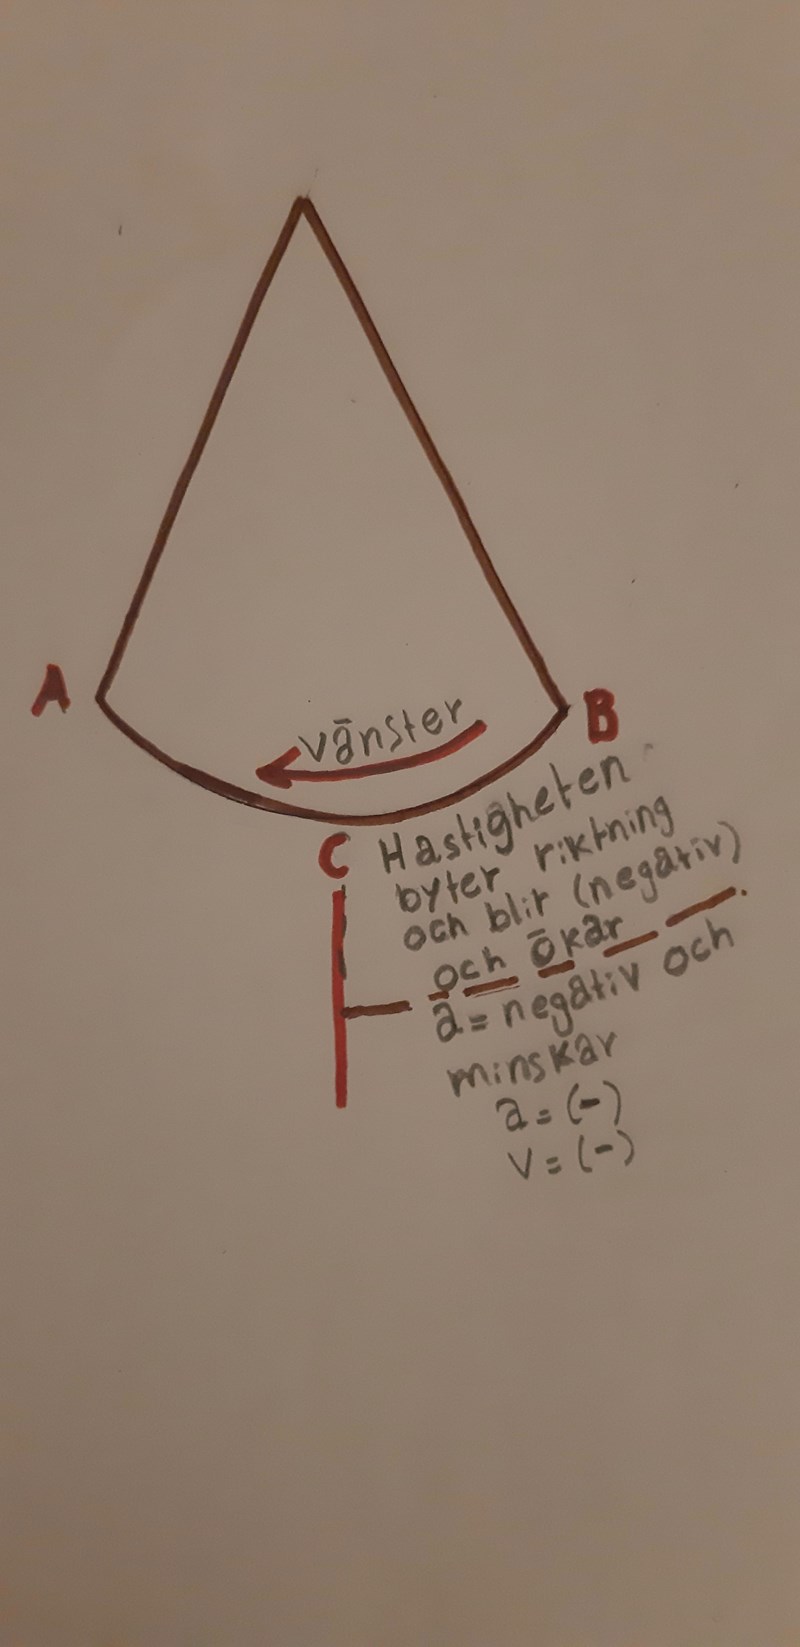 A
B
vänster
C
Hastigheten
byter riktning
och blir (negativ)
och ökar
a = negativ och
minskar
a = (-)
v = (-)